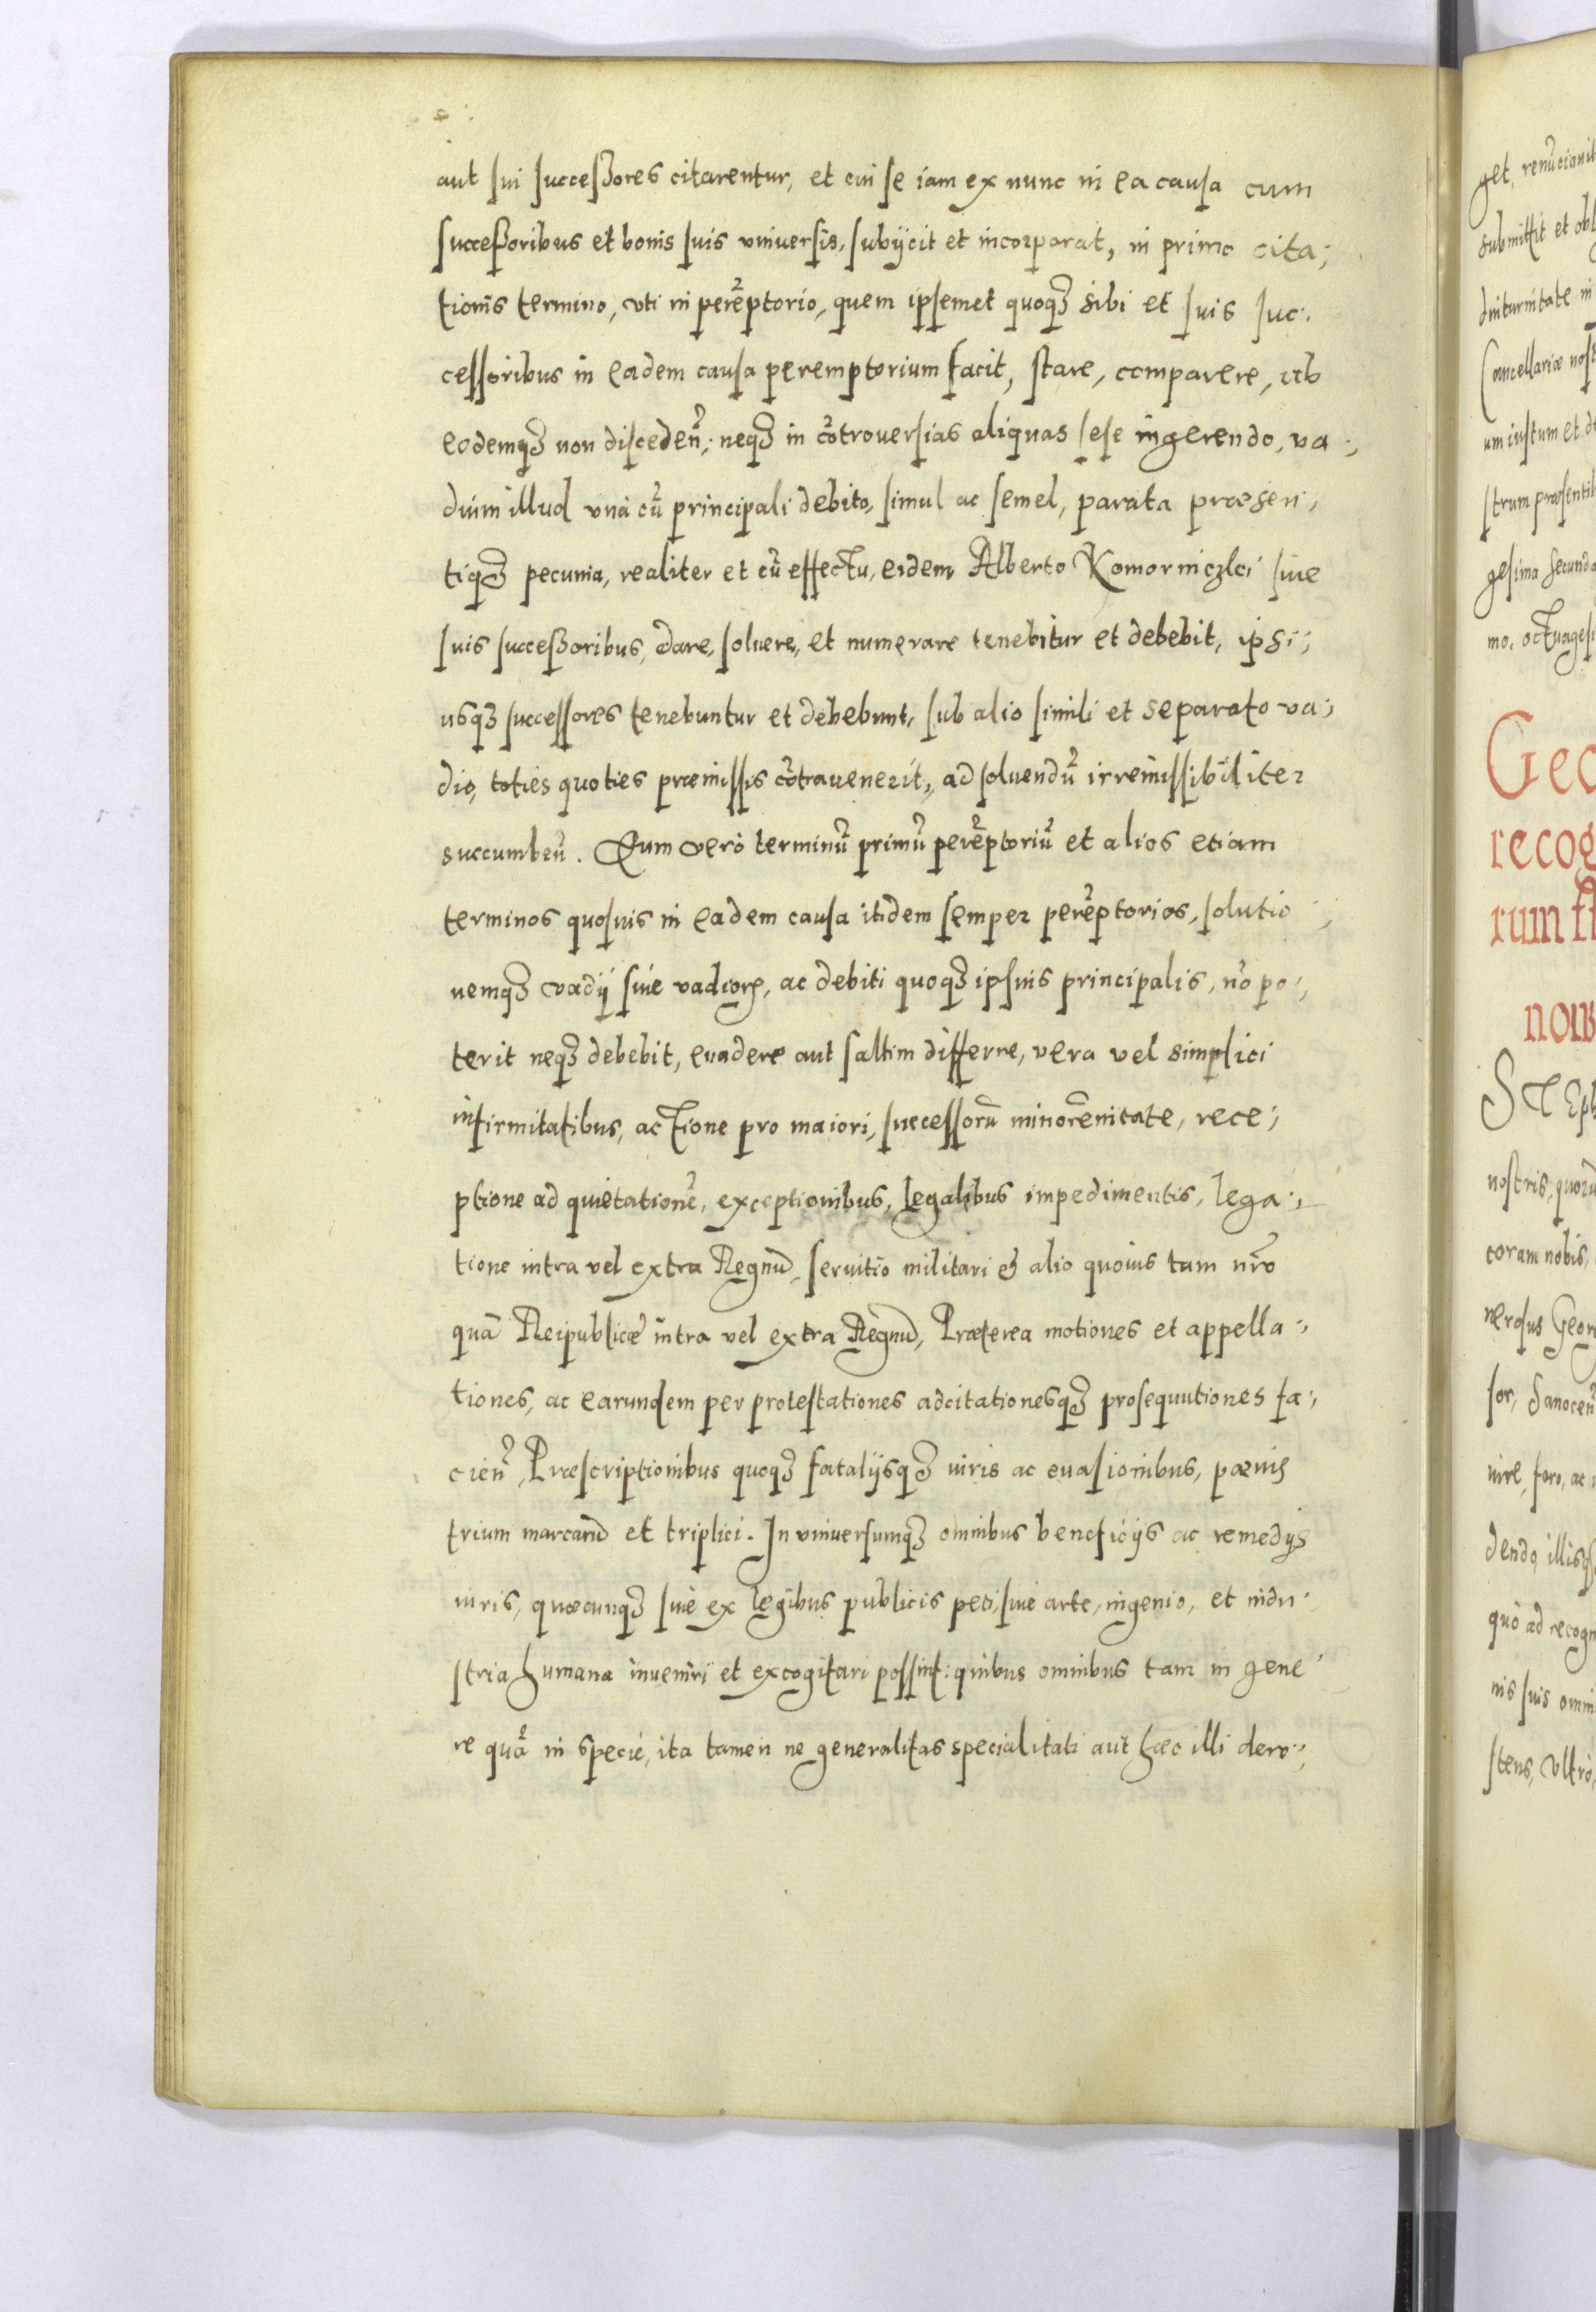 aut sui succeßores citarentur, et cui se iam ex nunc in ea causa cum
succeßoribus et bonis suis vniuersis, subijcit et incorporat, in primo cita;
tionis termino, vti in perẽptorio, quem ipsemet quoqȝ sibi et suis suc.
cessoribus in eadem causa peremptorium facit, stare, comparere, ab
eodemqȝ non disceden̄; neqȝ in cõtrouersias aliquas sese ingerendo, va;
dium illud vnà cũ principali debito, simul ac semel, parata præsen;
tiqȝ pecunia, realiter et cũ effectu, eidem Alberto Komorniczki siue
suis succeßoribus, dare, soluere, et numerare tenebitur et debebit, ipsi;
usqȝ successores tenebuntur et debebunt, sub alio simili et separato va;
dio, toties quoties præmissis cõtrauenerit, ad soluendũ irremissibiliter
succumben̄. Quem verò terminũ primũ perẽptoriũ et alios etiam
terminos quosuis in eadem causa itidem semper perẽptorios, solutio
nemqȝ vadij siue vadiorꝝ, ac debiti quoqȝ ipsius principalis, nõ po;
terit neqȝ debebit, euadere aut saltim differre, vera vel simplici
infirmitatibus, actione pro maiori, successorũ minorẽnitate, rece;
ptione ad quietationẽ, exceptionibus, legalibus impedimentis, lega;
tione intra vel extra Regnũ, seruitio militari & alio quouis tam nr̃o
quã Reipublicæ intra vel extra Regnũ, Præterea motiones et appella;
tiones, ac earundem per protestationes adcitationesqȝ prosequutiones fa;
cien̄, Præscriptionibus quoqȝ fatalijsqȝ iuris ac euasionibus, pœnis
trium marcarũ et triplici. In vniuersumqȝ omnibus beneficijs ac remedijs
iuris, quæcunqȝ siue ex legibus publicis peti, siue arte, ingenio, et indu
stria humana inueniri et excogitari possint: quibus omnibus tam in gene
re quã in specie, ita tamen ne generalitas specialitati aut hæc illi dero;
get, renũciauit
submittit et obl
diuturnitate in
Cancellariæ nost
um iustum et de
strum præsentib
gesima secunda
mo, octuagesi
Geo
recog
rum
now
Steph
nostris, quorũ
coram nobis,
nerosus Geor
sor, Sanocen̄
iure, foro, ac
dendo, illisqȝ
quò ad recogn
nis suis omni
stens, vltro,